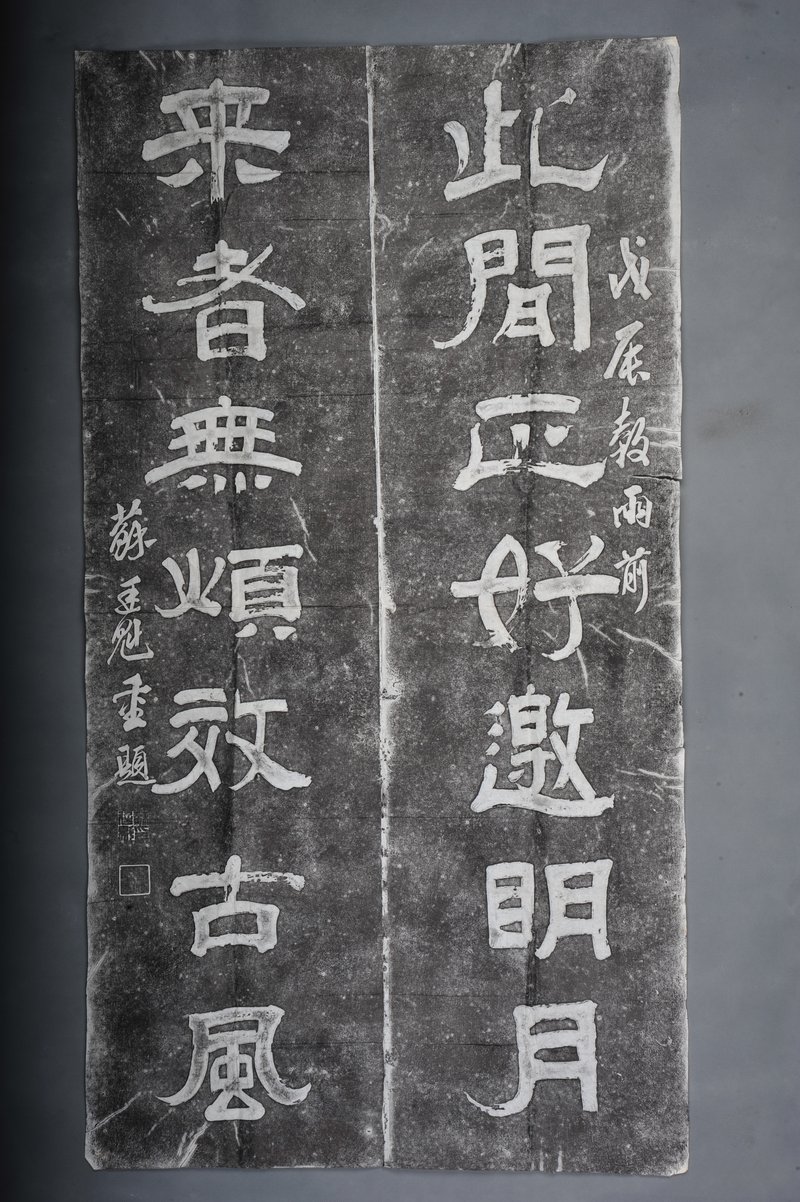 戊辰穀雨前
此間正好邀明月
来者無煩效古風
蘇廷魁重題